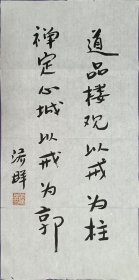 道品楼观以戒为柱
禅定心城以戒为郭